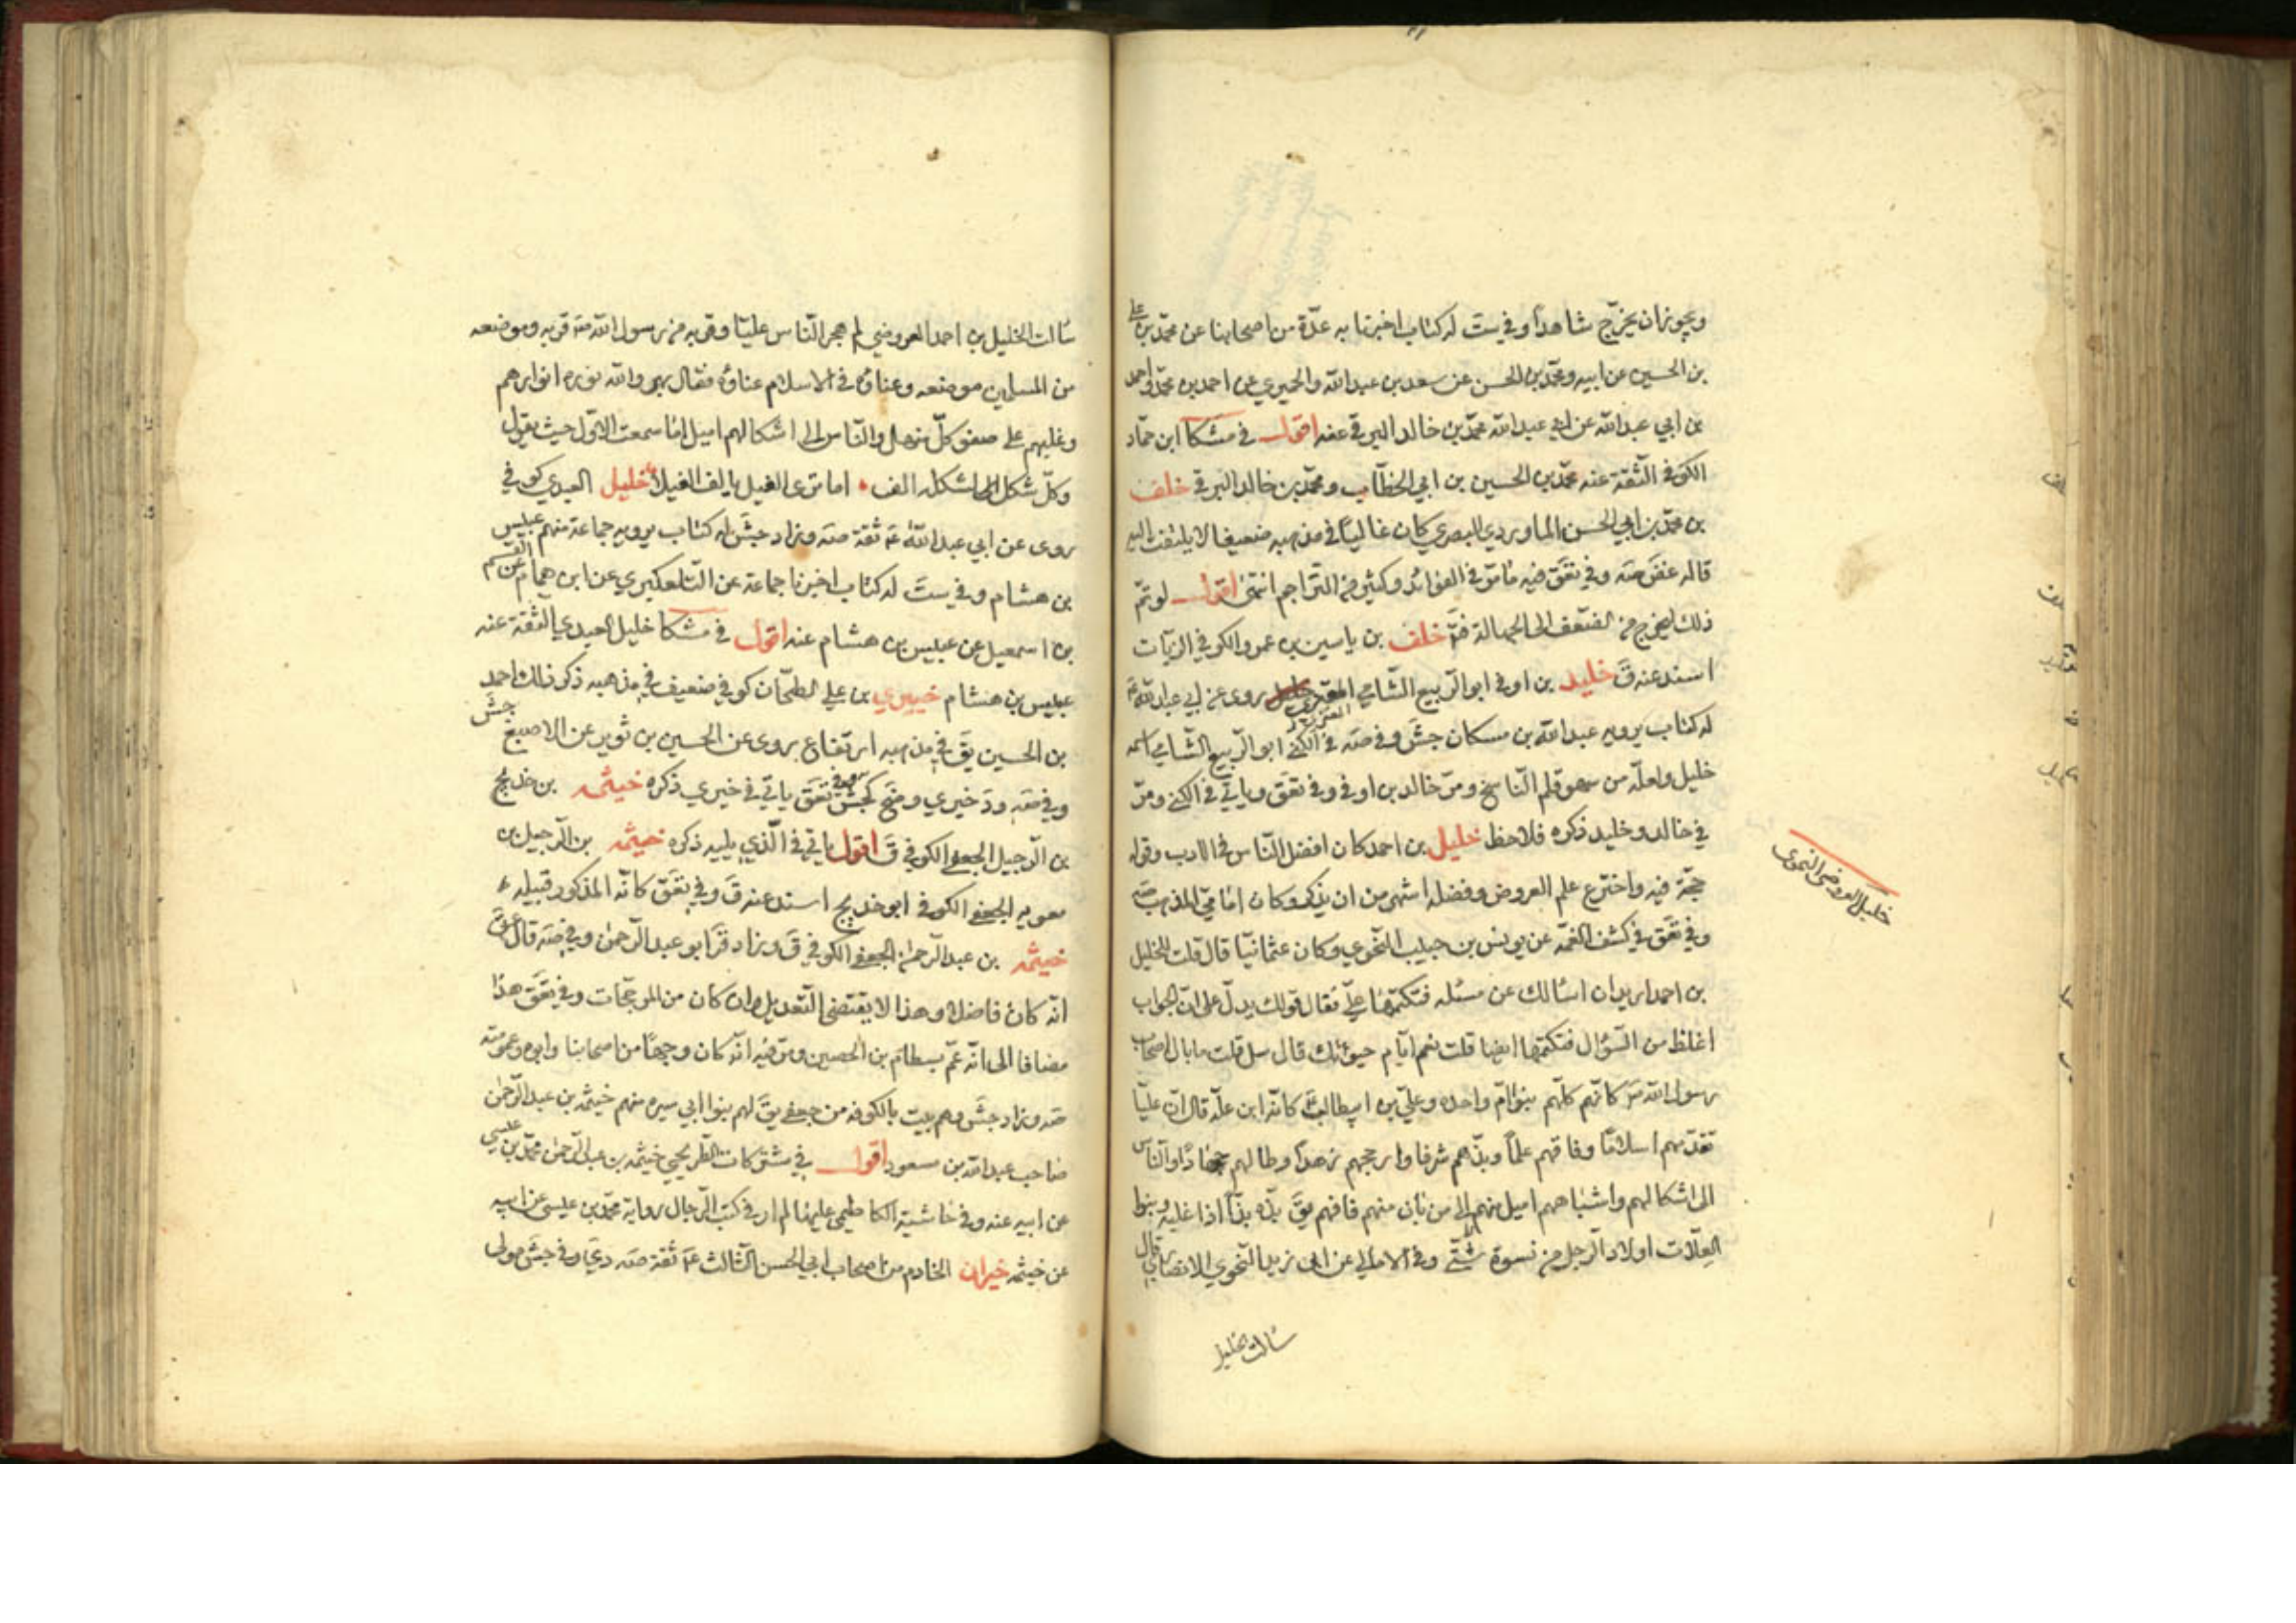 ويجوز ان يخرّج شاهداً وفي ست له كتاب اخبرنا به عدّة من اصحابنا عن محمّد بن علي
بن الحسين عن ابيه ومحمّد بن الحسن عن سعد بن عبد الله والحميري عن احمد بن محمّد واحمد
بن ابي عبد الله عن ابي عبد الله محمّد بن خالد البرقي عنه اقول في مشكا ابن حمّاد
الكوفي الثقة عنه محمّد بن الحسين بن ابي الخطّاب ومحمّد بن خالد البرقي خلف
بن محمّد بن ابي الحسن الماوردي البصري كان غالياً في مذهبه ضعيفا لا يلتفت اليه
قاله غض صه وفي تعق فيه مامرّ في الفوائد وكثير من التراجم انتهى اقول لو تمّ
ذلك ليخرج من الضعف الى الجهالة فتدبّر خلف بن ياسين بن عمرو الكوفي الزيّات
اسند عنه ق خليد بن اوفى ابو الربيع الشامي العنزي روى عن ابي عبد الله ع
له كتاب يرويه عبد الله بن مسكان جش وفي صه في الكنى ابو الربيع الشامي اسمه
خليل ولعلّه من سهو قلم النّاسخ ومرّ خالد بن اوفى وفي تعق وياتي في الكنى ومرّ
في خالد وخليد ذكره فلاحظ خليل بن احمد كان افضل النّاس في الادب وقوله
حجّة فيه واخترع علم العروض وفضله اشهر من ان يذكر وكان امامي المذهب صه
وفي تعق في كشف الغمّه عن يونس بن حبيب النّحوي وكان عثمانيّا قال قلت للخليل
بن احمد اريد ان اسالك عن مسئله فتكتمها عليّ فقال قولك يدلّ على انّ الجواب
اغلظ من السّؤال فتكتمها ايضا قلت نعم ايّام حيوتك قال سل قلت مابال اصحاب
رسول الله ص كانّهم كلّهم بنو امّ واحده وعليّ بن ابيطالب ع كانّه ابن علّه قال انّ عليّا
تقدّمهم اسلامًا وفاقهم علمًا وبذّهم شرفا وارجحهم زهداً وطالهم جهادًا والنّاس
الى اشكالهم واشباههم اميل منهم الى من بان منهم فافهم يق بذّه بذّاً اذا غلبه وبنوا
العلّات اولاد الرّجل من نسوة شتّى وفي الامالي عن ابي زيد النّحوي الانصاري قال
سالت الخليل
خليل العروضي النحوي
سالت الخليل بن احمد العروضي لم هجر النّاس عليّا وقربه من رسول الله ص قربه وموضعه
من المسلمين موضعه وعناؤه في الاسلام عناؤه فقال بهر والله نوره انوارهم
وغلبهم على صفو كلّ منهل والنّاس الى اشكالهم اميل اما سمعت الاوّل حيث يقول
وكلّ شكل الى شكله الف اما ترى الفيل يالف الفيلا خليل العبدي كوفي
روى عن ابي عبد الله ع ثقة صه وزاد جش له كتاب يرويه جماعة منهم عبيس
بن هشام وفي ست له كتاب اخبرنا جماعة عن التلعكبري عن ابن همام عن القسم
بن اسمعيل عن عبيس بن هشام عنه اقول في مشكا خليل العبدي الثقة عنه
عبيس بن هشام خيبري بن علي الطحّان كوفي ضعيف في مذهبه ذكر ذلك احمد
بن الحسين يق في مذهبه ارتفاع روى عن الحسين بن ثوير عن الاصبغ جش
وفي صه ود خيري وضح كجش وفي تعق ياتي في خيري ذكره خيثمه بن خديج
بن الرّحيل الجعفي الكوفي ق اقول ياتي في الّذي يليه ذكره خيثمه بن الرّحيل بن
معويه الجعفي الكوفي ابو خديج اسند عنه ق وفي تعق كانّه المذكور قبيله
خيثمه بن عبد الرحمن الجعفي الكوفي ق وزاد قر ابو عبد الرّحمن وفي صه قال عق
انّه كان فاضلا وهذا لا يقتضي التّعديل وان كان من المرجّحات وفي تعق هذا
مضافا الى انّه عمّ بسطام بن الحصين ومرّ فيه انّه كان وجهًا من اصحابنا وابوه وعمومته
صه وزاد جش وهم بيت بالكوفه من جعفي يق لهم بنوا ابي سبره منهم خيثمه بن عبد الرّحمن
صاحب عبد الله بن مسعود اقول في مشتركات الطّريحي خيثمه بن عبد الرّحمن محمّد بن عيسى
عن ابيه عنه وفي حاشية الكاظمي عليها لم ار في كتب الرّجال رواية محمّد بن عيسى عن ابيه
عن خيثمه خيران الخادم من اصحاب ابي الحسن الثّالث ع ثقة صه دي وفي جش مولى